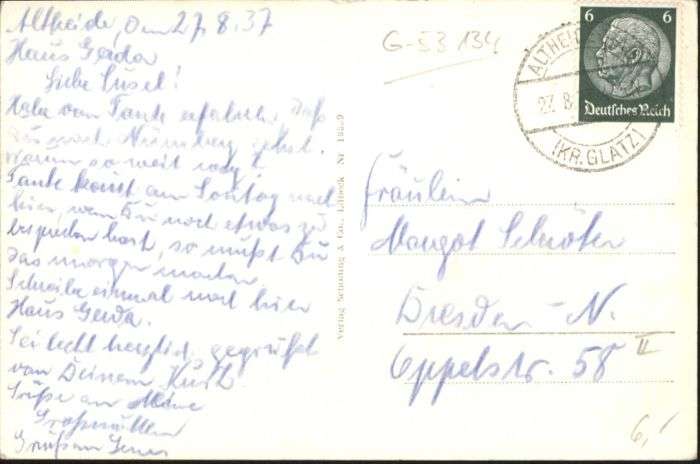 Altheide, den 27.8.37
Haus Gerda
Liebe Lusel!
Habe von Tante erfahren, daß
Du nach Nürnberg gehst.
Warum so weit weg?
Tante kommt am Sontag nach
hier, wenn Du noch etwas zu
besprechen hast, so mußt Du
das morgen machen.
Schreibe einmal nach hier
Haus Gerda.
Sei recht herzlich gegrüßt
von Deinem Kurt
Grüße an Deine
Großmutter
Gruß an
G-53 134
6 6
Deutsches Reich
ALTHEI
27. 8.
(KR. GLATZ)
Verlag Schöning & Co., Lübeck Nr
Fräulein
Margot Schröter
Dresden-N.
Oppelstr. 58 II
6,-